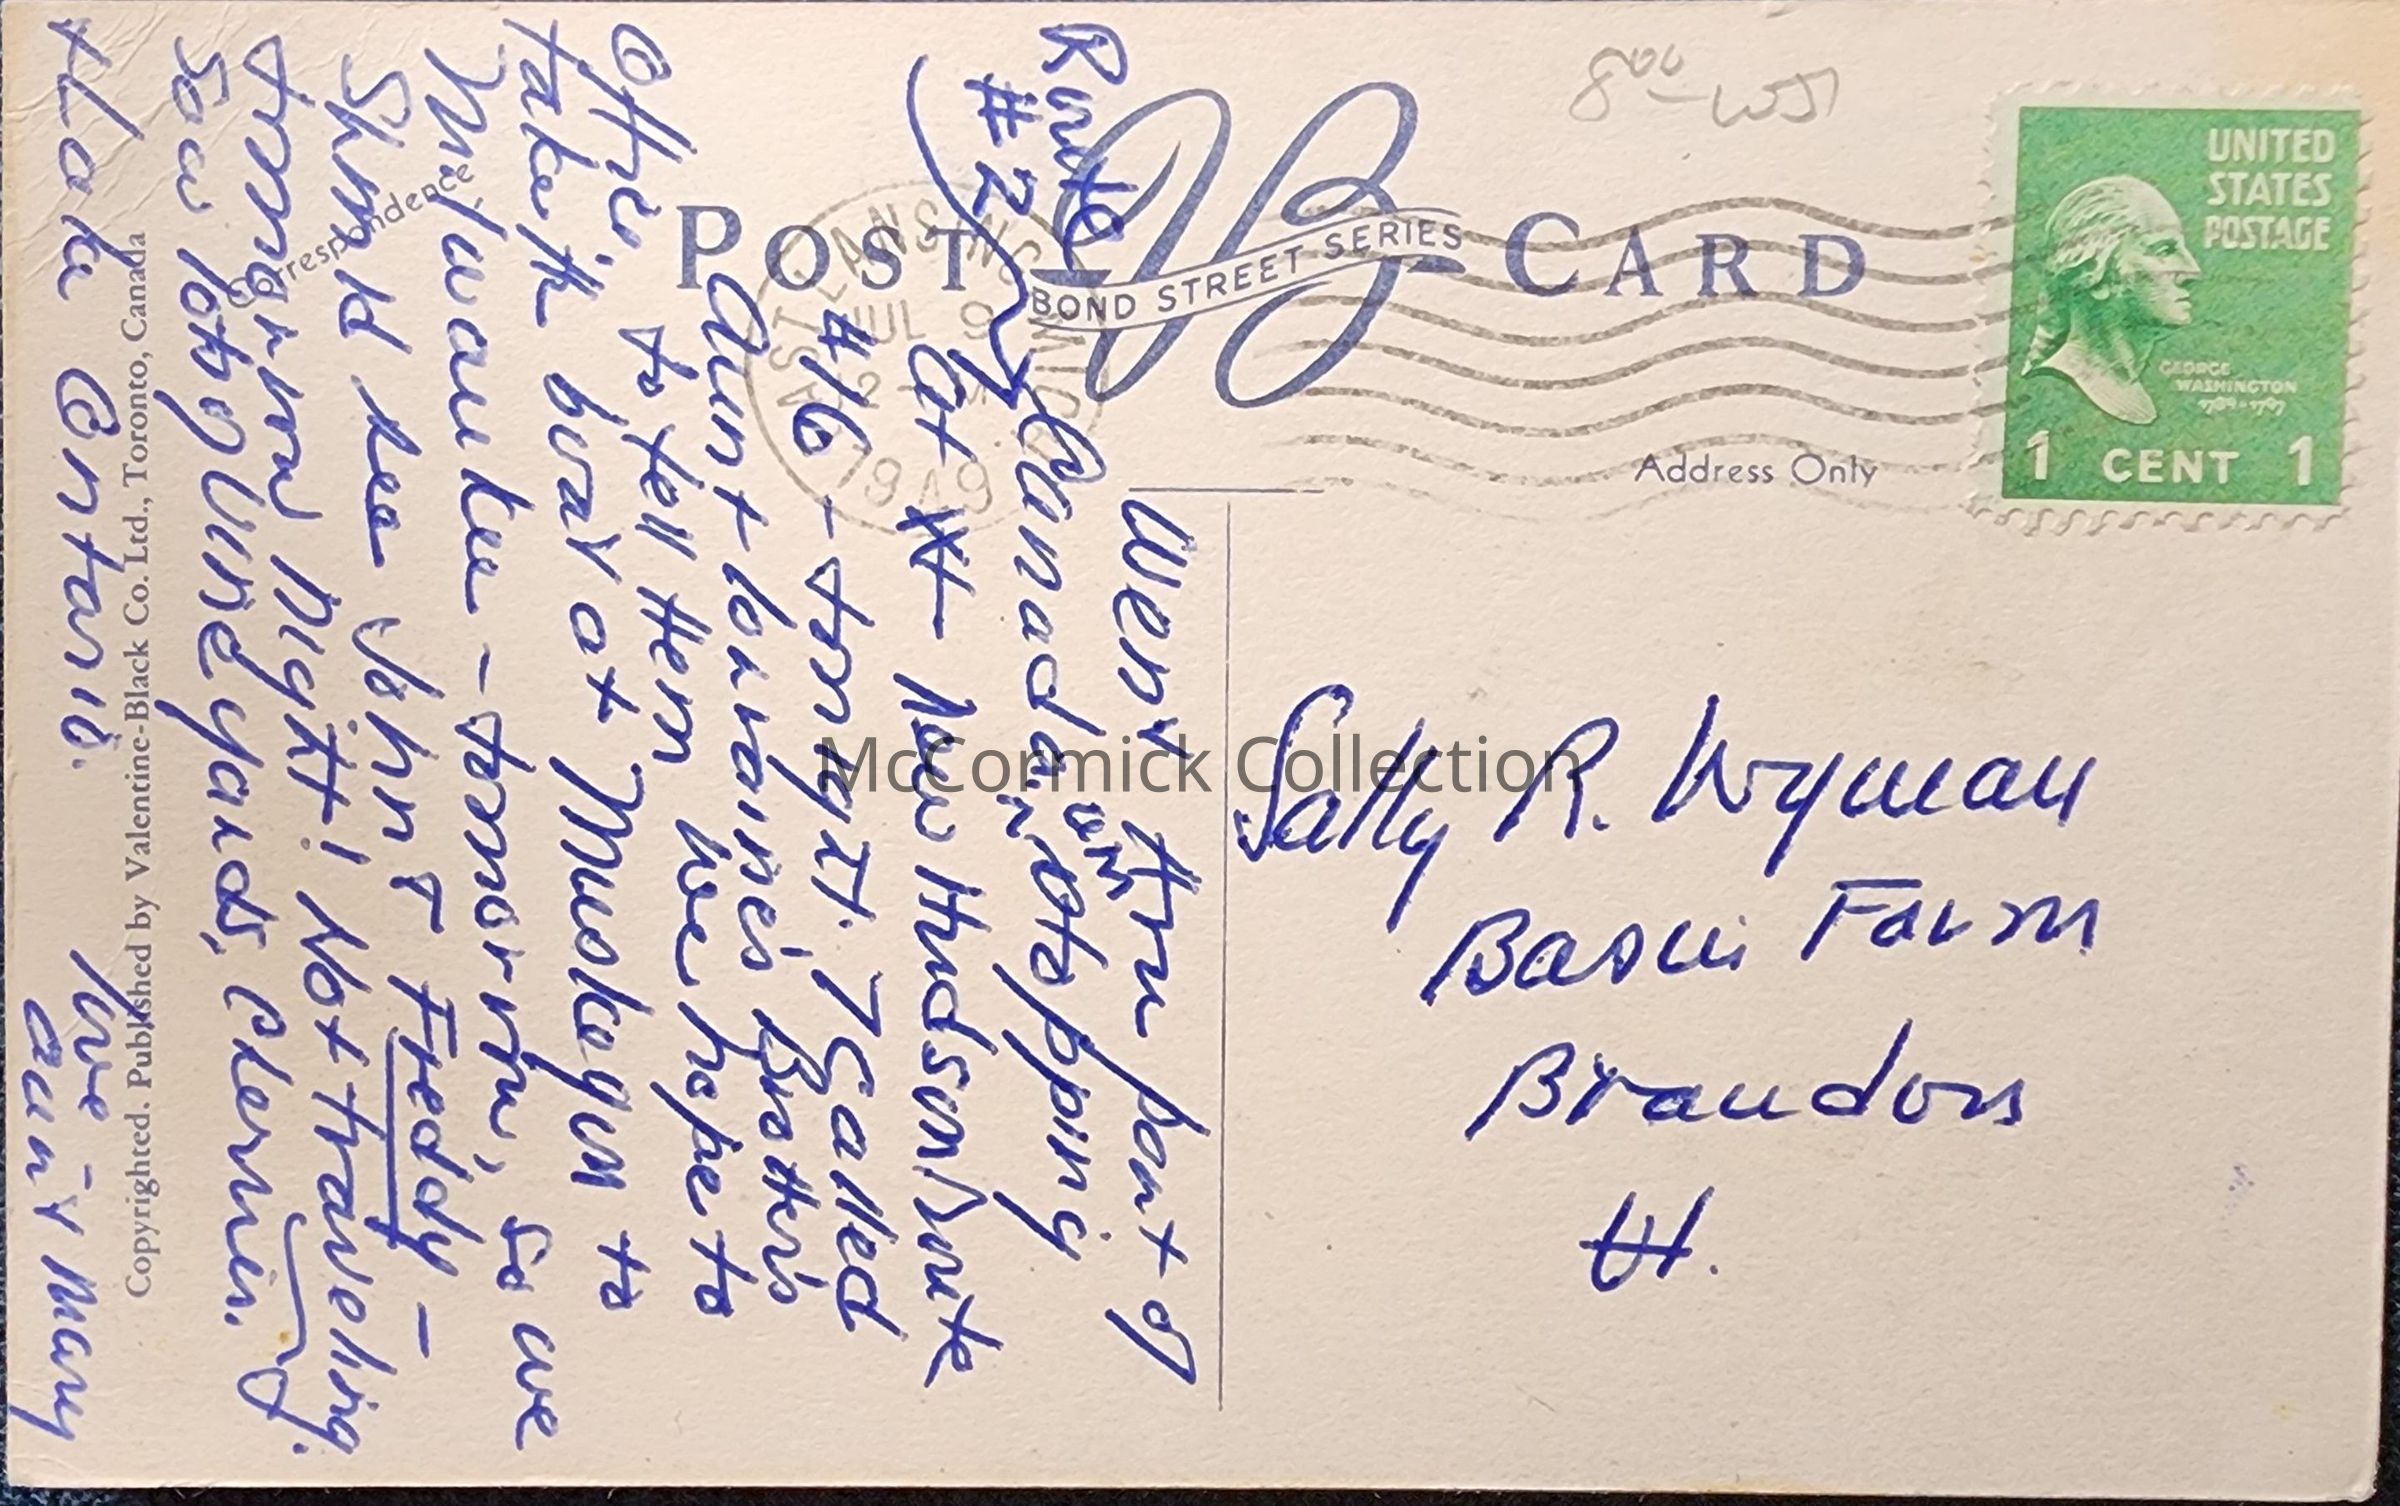 8.00 - WS
POST CARD
BOND STREET SERIES
UNITED
STATES
POSTAGE
GEORGE
WASHINGTON
1789-1797
1 CENT 1
EAST LANSING MICH
JUL 9
12
1949
Address Only
Correspondence
Route
#2
Went thru part of
Canada, on
stopping
at new Hudson Route
#16 - tonight. I called
Aunt Louine's Brother's
Office, to tell them we hope to
take the boat at Muskegon to
Milwaukee - tomorrow, so we
Should see John & Fredy -
tomorrow night! Not traveling.
Saw lots vineyards,
+ Lake Ontario.
Love
Aunt Mary
Sally R. Wyman
Basin Farm
Brandon
Vt.
Copyrighted. Published by Valentine-Black Co. Ltd., Toronto, Canada
McCormick Collection